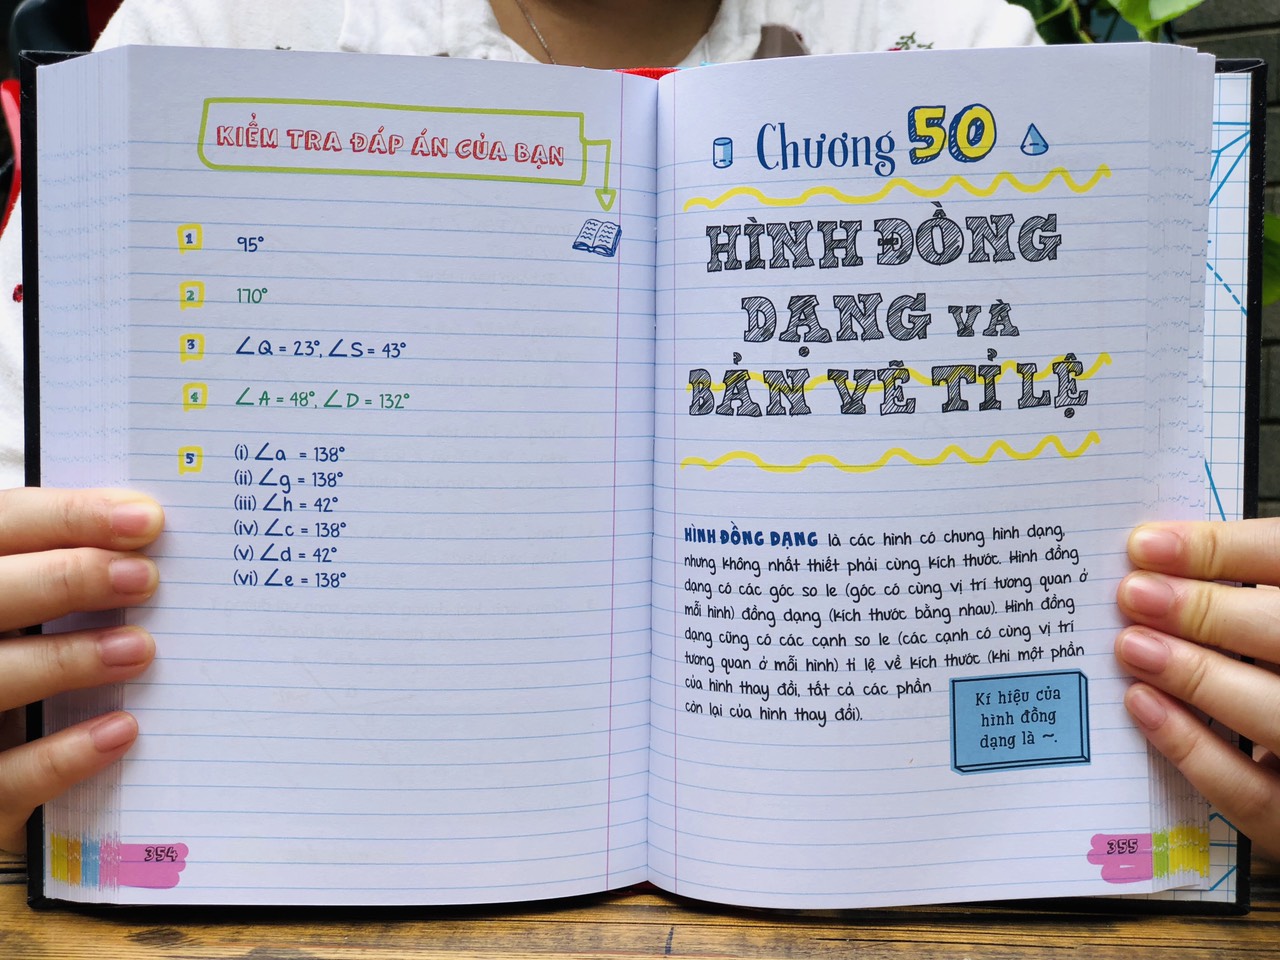 KIỂM TRA ĐÁP ÁN CỦA BẠN
1 95°
2 170°
3 ∠Q = 23°, ∠S = 43°
4 ∠A = 48°, ∠D = 132°
5 (i) ∠a = 138°
(ii) ∠g = 138°
(iii) ∠h = 42°
(iv) ∠c = 138°
(v) ∠d = 42°
(vi) ∠e = 138°
354
Chương 50
HÌNH ĐỒNG
DẠNG VÀ
BẢN VẼ TỈ LỆ
HÌNH ĐỒNG DẠNG là các hình có chung hình dạng,
nhưng không nhất thiết phải cùng kích thước. Hình đồng
dạng có các góc so le (góc có cùng vị trí tương quan ở
mỗi hình) đồng dạng (kích thước bằng nhau). Hình đồng
dạng cũng có các cạnh so le (các cạnh có cùng vị trí
tương quan ở mỗi hình) tỉ lệ về kích thước (khi một phần
của hình thay đổi, tất cả các phần
còn lại của hình thay đổi).
Kí hiệu của
hình đồng
dạng là ~.
355